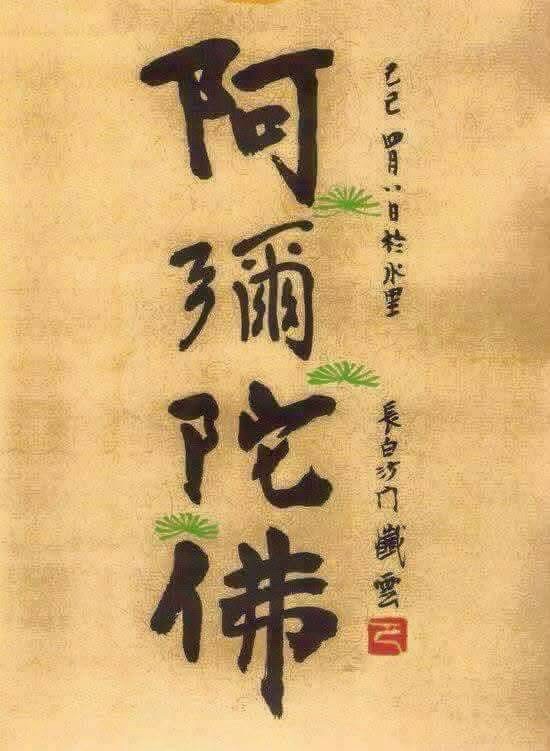 阿彌陀佛
己巳四月八日於水里
長白沙门懺雲